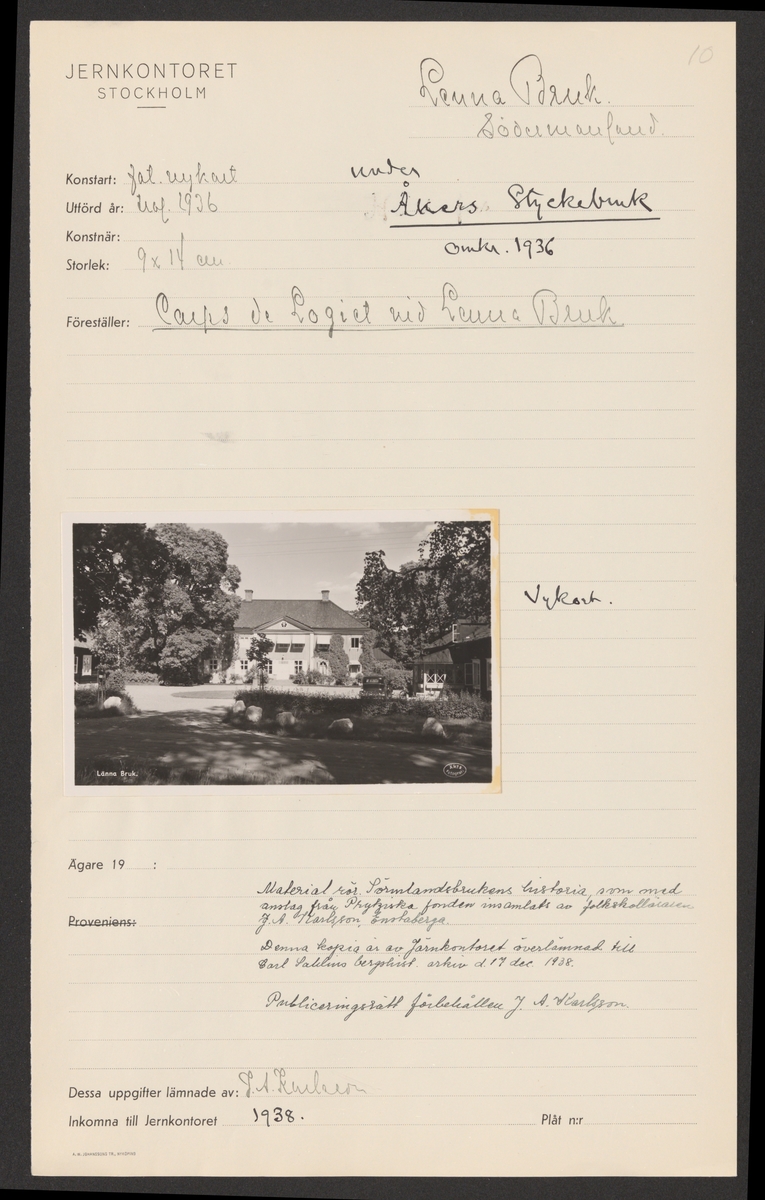 10
JERNKONTORET
STOCKHOLM
Lenna Bruk.
Södermanland.
Konstart: fot. vykort
under
Utförd år: 1936
Åkers Styckebruk
Konstnär:
omkr. 1936
Storlek: 9 x 14 cm.
Föreställer: Corps de Logiet vid Lenna Bruk
Vykort.
Länna Bruk.
Ägare 19 :
Material rör. Sörmlandsbrukens historia, som med
anslag från Prytziska fonden insamlats av folkskolläraren
Proveniens:
J. A. Karlsson, Enstaberga.
Denna kopia är av Järnkontoret överlämnad till
Carl Sahlins bergshist. arkiv d. 17 dec. 1938.
Publiceringsrätt förbehållen J. A. Karlsson.
Dessa uppgifter lämnade av: J. A. Karlsson
Inkomna till Jernkontoret 1938. Plåt n:r